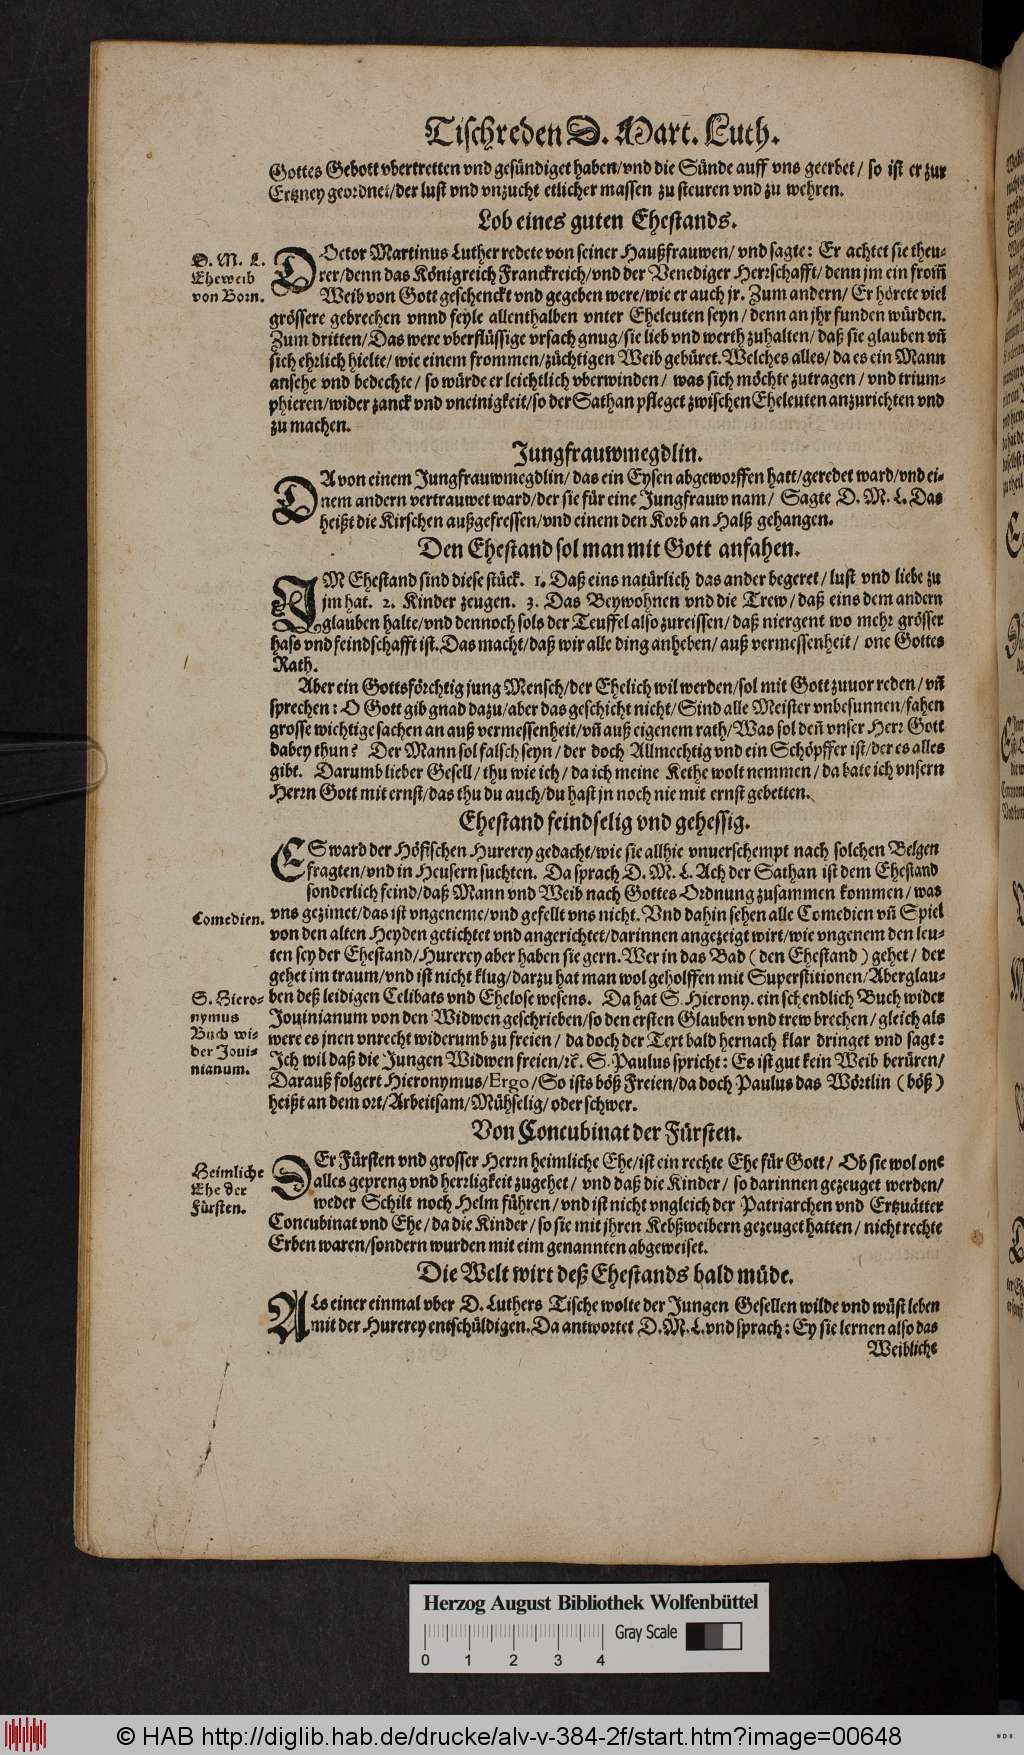 Tischreden D. Mart. Luth.
Gottes Gebott vbertretten vnd gesündiget haben/vnd die Sünde auff vns geerbet/ so ist er zur
Ertzney geordnet/der lust vnd vnzucht etlicher massen zu steuren vnd zu wehren.
Lob eines guten Ehestands.
D. M. L.
Eheweib
von Born.
DOctor Martinus Luther redete von seiner Haußfrauwen/ vnd sagte: Er achtet sie theu-
rer/denn das Königreich Franckreich/vnd der Venediger Herrschafft/denn jm ein from̃
Weib von Gott geschenckt vnd gegeben were/wie er auch jr. Zum andern/ Er hörete viel
grössere gebrechen vnnd feyle allenthalben vnter Eheleuten seyn/ denn an jhr funden würden.
Zum dritten/Das were vberflüssige vrsach gnug/sie lieb vnd werth zuhalten/ daß sie glauben vñ
sich ehrlich hielte/ wie einem frommen/züchtigen Weib gebüret. Welches alles/ da es ein Mann
ansehe vnd bedechte/ so würde er leichtlich vberwinden/ was sich möchte zutragen/ vnd trium-
phieren/wider zanck vnd vneinigkeit/so der Sathan pfleget zwischen Eheleuten anzurichten vnd
zu machen.
Jungfrauwmegdlin.
DA von einem Jungfrauwmegdlin/ das ein Eysen abgeworffen hatt/geredet ward/vnd ei-
nem andern vertrauwet ward/der sie für eine Jungfrauw nam/ Sagte D. M. L. Das
heißt die Kirschen außgefressen/vnd einem den Korb an Halß gehangen.
Den Ehestand sol man mit Gott anfahen.
IM Ehestand sind diese stück. 1. Daß eins natürlich das ander begeret/ lust vnd liebe zu
jm hat. 2. Kinder zeugen. 3. Das Beywohnen vnd die Trew/ daß eins dem andern
glauben halte/vnd dennoch sols der Teuffel also zureissen/ daß niergent wo mehr grösser
hass vnd feindschafft ist. Das macht/daß wir alle ding anheben/ auß vermessenheit/ one Gottes
Rath.
Aber ein Gottsförchtig jung Mensch/der Ehelich wil werden/sol mit Gott zuuor reden/ vñ
sprechen: O Gott gib gnad dazu/aber das geschicht nicht/Sind alle Meister vnbesunnen/fahen
grosse wichtige sachen an auß vermessenheit/vñ auß eigenem rath/Was sol deñ vnser Herr Gott
dabey thun? Der Mann sol falsch seyn/ der doch Allmechtig vnd ein Schöpffer ist/der es alles
gibt. Darumb lieber Gesell/ thu wie ich/ da ich meine Kethe wolt nemmen/ da bate ich vnsern
Herrn Gott mit ernst/das thu du auch/du hast jn noch nie mit ernst gebetten.
Ehestand feindselig vnd gehessig.
ES ward der Höfischen Hurerey gedacht/wie sie allhie vnuerschempt nach solchen Belgen
fragten/vnd in Heusern suchten. Da sprach D. M. L. Ach der Sathan ist dem Ehestand
sonderlich feind/daß Mann vnd Weib nach Gottes Ordnung zusammen kommen/ was
Comedien.
vns gezimet/das ist vngeneme/vnd gefellt vns nicht. Vnd dahin sehen alle Comedien vñ Spiel
von den alten Heyden getichtet vnd angerichtet/darinnen angezeigt wirt/wie vngenem den leu-
ten sey der Ehestand/Hurerey aber haben sie gern. Wer in das Bad (den Ehestand) gehet/ der
gehet im traum/vnd ist nicht klug/darzu hat man wol geholffen mit Superstitionen/Aberglau-
S. Hiero-
nymus
Buch wi-
der Joui-
nianum.
ben deß leidigen Celibats vnd Ehelose wesens. Da hat S. Hierony. ein schendlich Buch wider
Jouinianum von den Widwen geschrieben/so den ersten Glauben vnd trew brechen/ gleich als
were es jnen vnrecht widerumb zu freien/ da doch der Text bald hernach klar dringet vnd sagt:
Ich wil daß die Jungen Widwen freien/ꝛc̃. S. Paulus spricht: Es ist gut kein Weib berüren/
Darauß folgert Hieronymus/Ergo/So ists böß Freien/da doch Paulus das Wörtlin (böß)
heißt an dem ort/Arbeitsam/Mühselig/ oder schwer.
Von Concubinat der Fürsten.
Heimliche
Ehe der
Fürsten.
DEr Fürsten vnd grosser Herrn heimliche Ehe/ist ein rechte Ehe für Gott/ Ob sie wol one
alles gepreng vnd herrligkeit zugehet/ vnd daß die Kinder/ so darinnen gezeuget werden/
weder Schilt noch Helm führen/ vnd ist nicht vngleich der Patriarchen vnd Ertzuätter
Concubinat vnd Ehe/da die Kinder/so sie mit jhren Kebßweibern gezeuget hatten/ nicht rechte
Erben waren/sondern wurden mit eim genannten abgeweiset.
Die Welt wirt deß Ehestands bald müde.
ALs einer einmal vber D. Luthers Tische wolte der Jungen Gesellen wilde vnd wüst leben
mit der Hurerey entschüldigen. Da antwortet D. M. L. vnd sprach: Ey sie lernen also das
Weibliche
Herzog August Bibliothek Wolfenbüttel
Gray Scale
0 1 2 3 4
© HAB http://diglib.hab.de/drucke/alv-v-384-2f/start.htm?image=00648